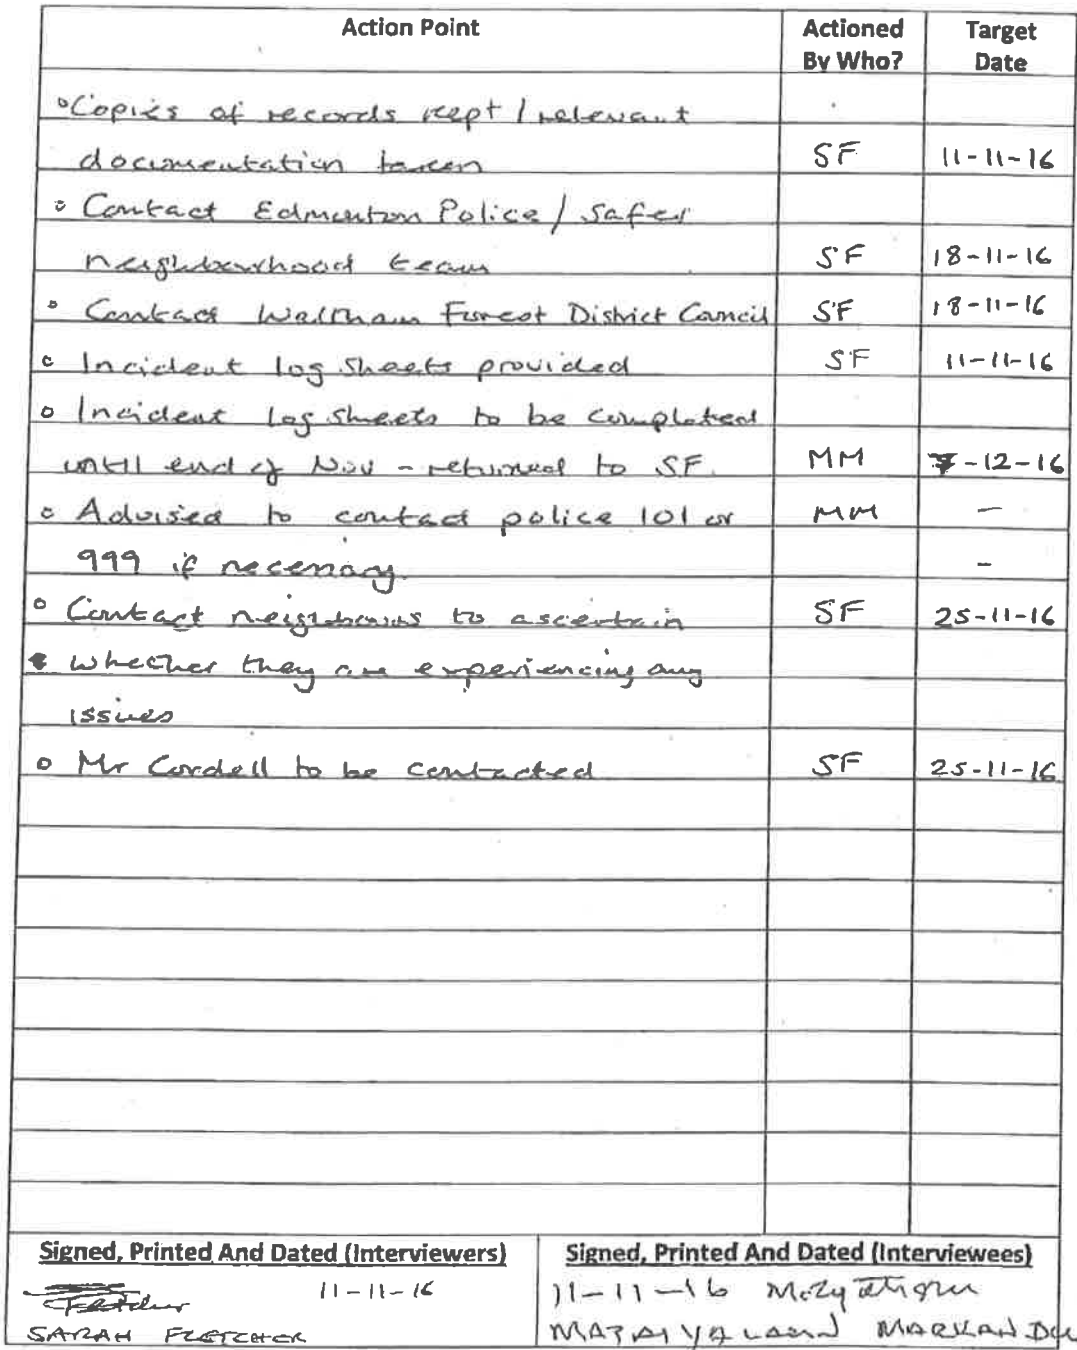 Action Point Actioned By Who? Target Date
° Copies of records kept / relevant
documentation taken SF 11-11-16
° Contact Edmonton Police / Safer
neighbourhood team SF 18-11-16
° Contact Waltham Forest District Council SF 18-11-16
° Incident log sheets provided SF 11-11-16
° Incident log sheets to be completed
until end of Nov - returned to SF. MM 7-12-16
° Advised to contact police 101 or MM -
999 if necessary. -
° Contact neighbours to ascertain SF 25-11-16
whether they are experiencing any
issues
° Mr Cordell to be contacted SF 25-11-16
Signed, Printed And Dated (Interviewers) Signed, Printed And Dated (Interviewees)
Fletcher 11-11-16 11-11-16
SARAH FLETCHER MARKANDU